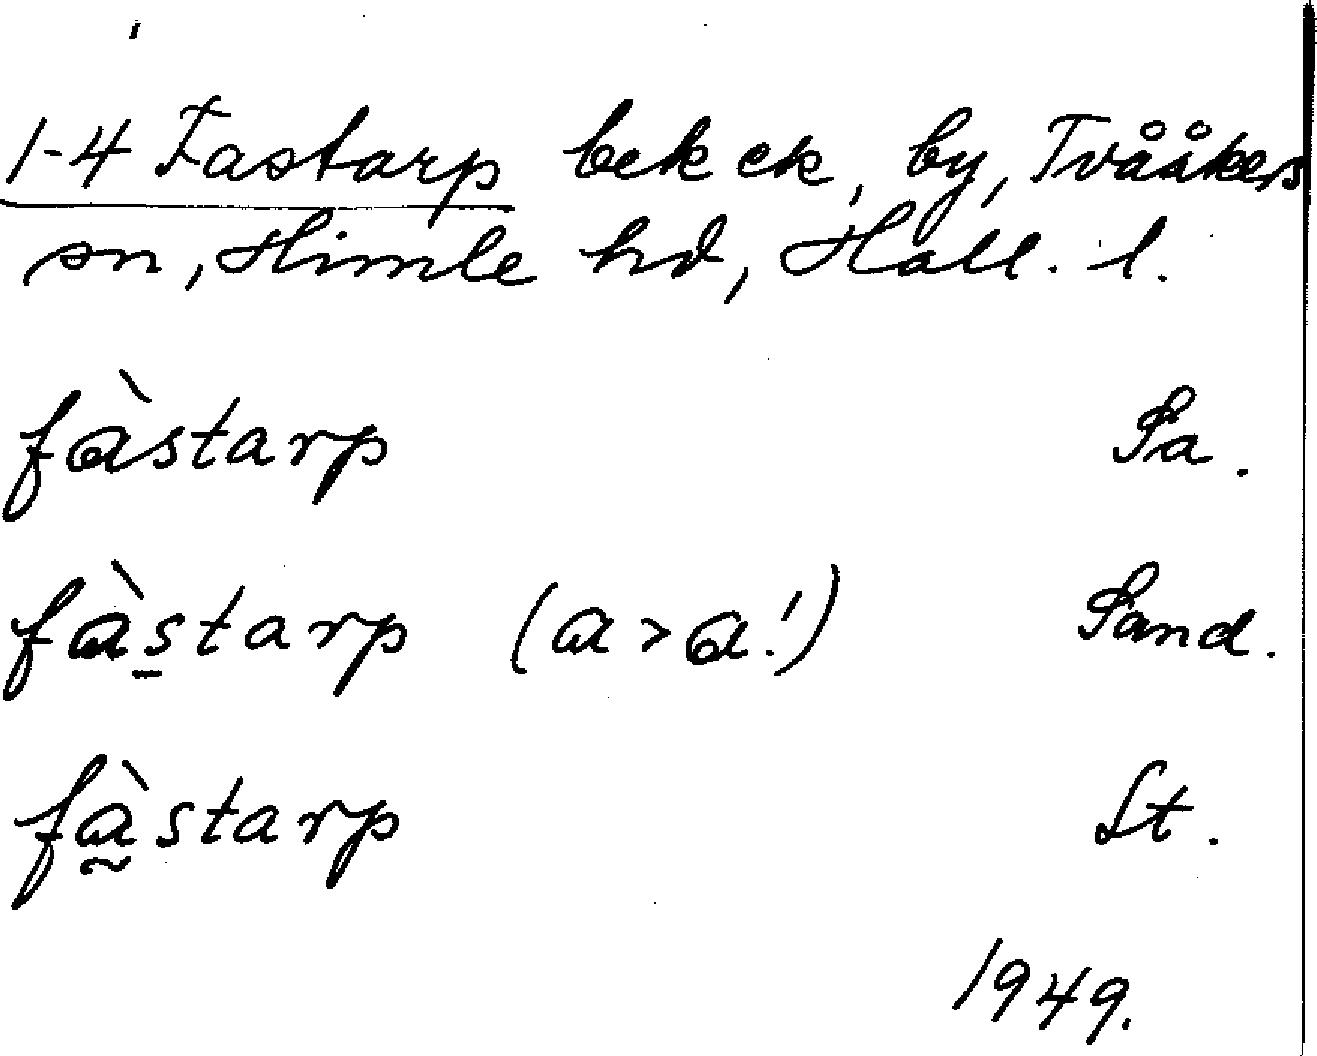 1-4 Fastarp bekek, by, Tvååkers
sn, Himle hd, Hall. l.
fàstarp Sa.
fàs̱tarp (a > a!) Sand.
fà̰starp St.
1949.